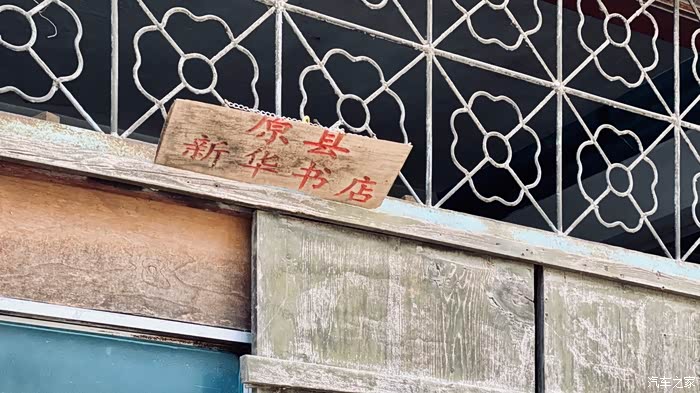 原县
新华书店
汽车之家